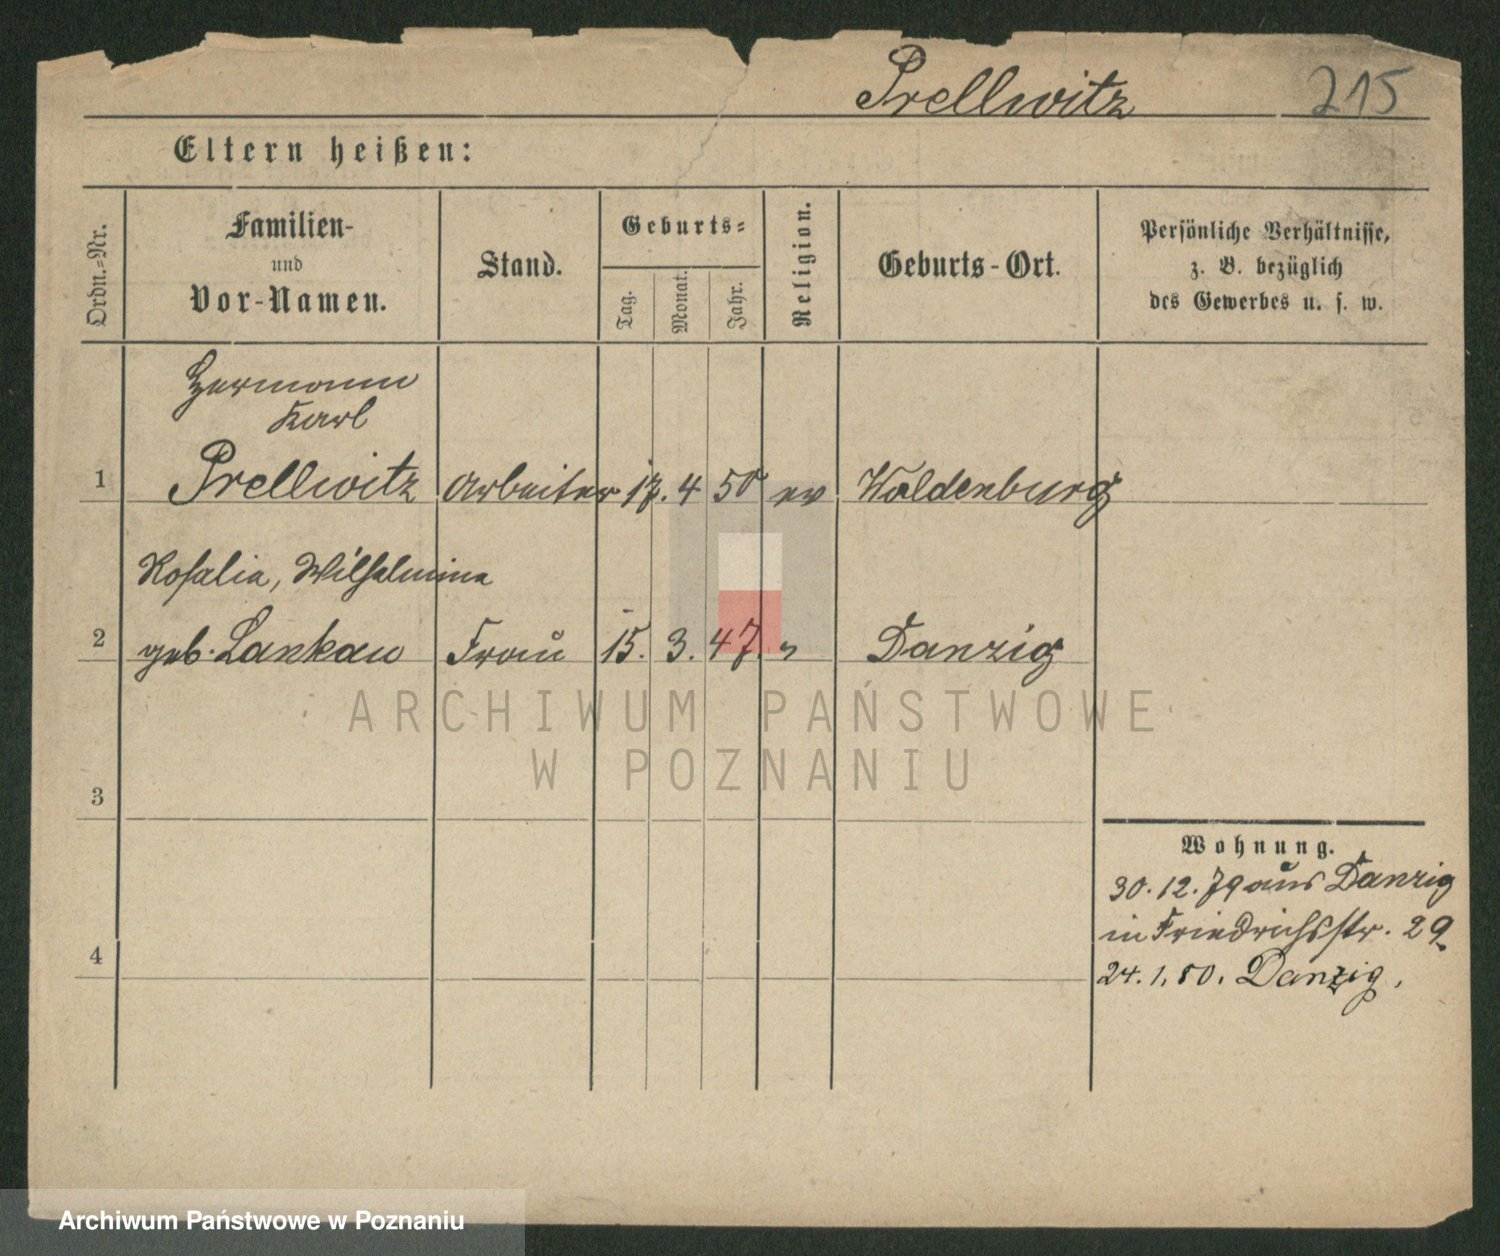 Prellwitz
215
Eltern heißen:
Ordn.-Nr.
Familien-
und
Vor-Namen.
Stand.
Geburts-
Tag.
Monat.
Jahr.
Religion.
Geburts-Ort.
Persönliche Verhältnisse,
z. B. bezüglich
des Gewerbes u. s. w.
Hermann
Karl
1 Prellwitz Arbeiter 17. 4 50 ev Waldenburg
Rosalia, Wilhelmine
2 geb. Lankau Frau 15. 3. 47. " Danzig
ARCHIWUM PAŃSTWOWE
W POZNANIU
3
Wohnung.
30. 12. 79 aus Danzig
in Friedrichsstr. 29
4
24. 1. 80. Danzig.
Archiwum Państwowe w Poznaniu